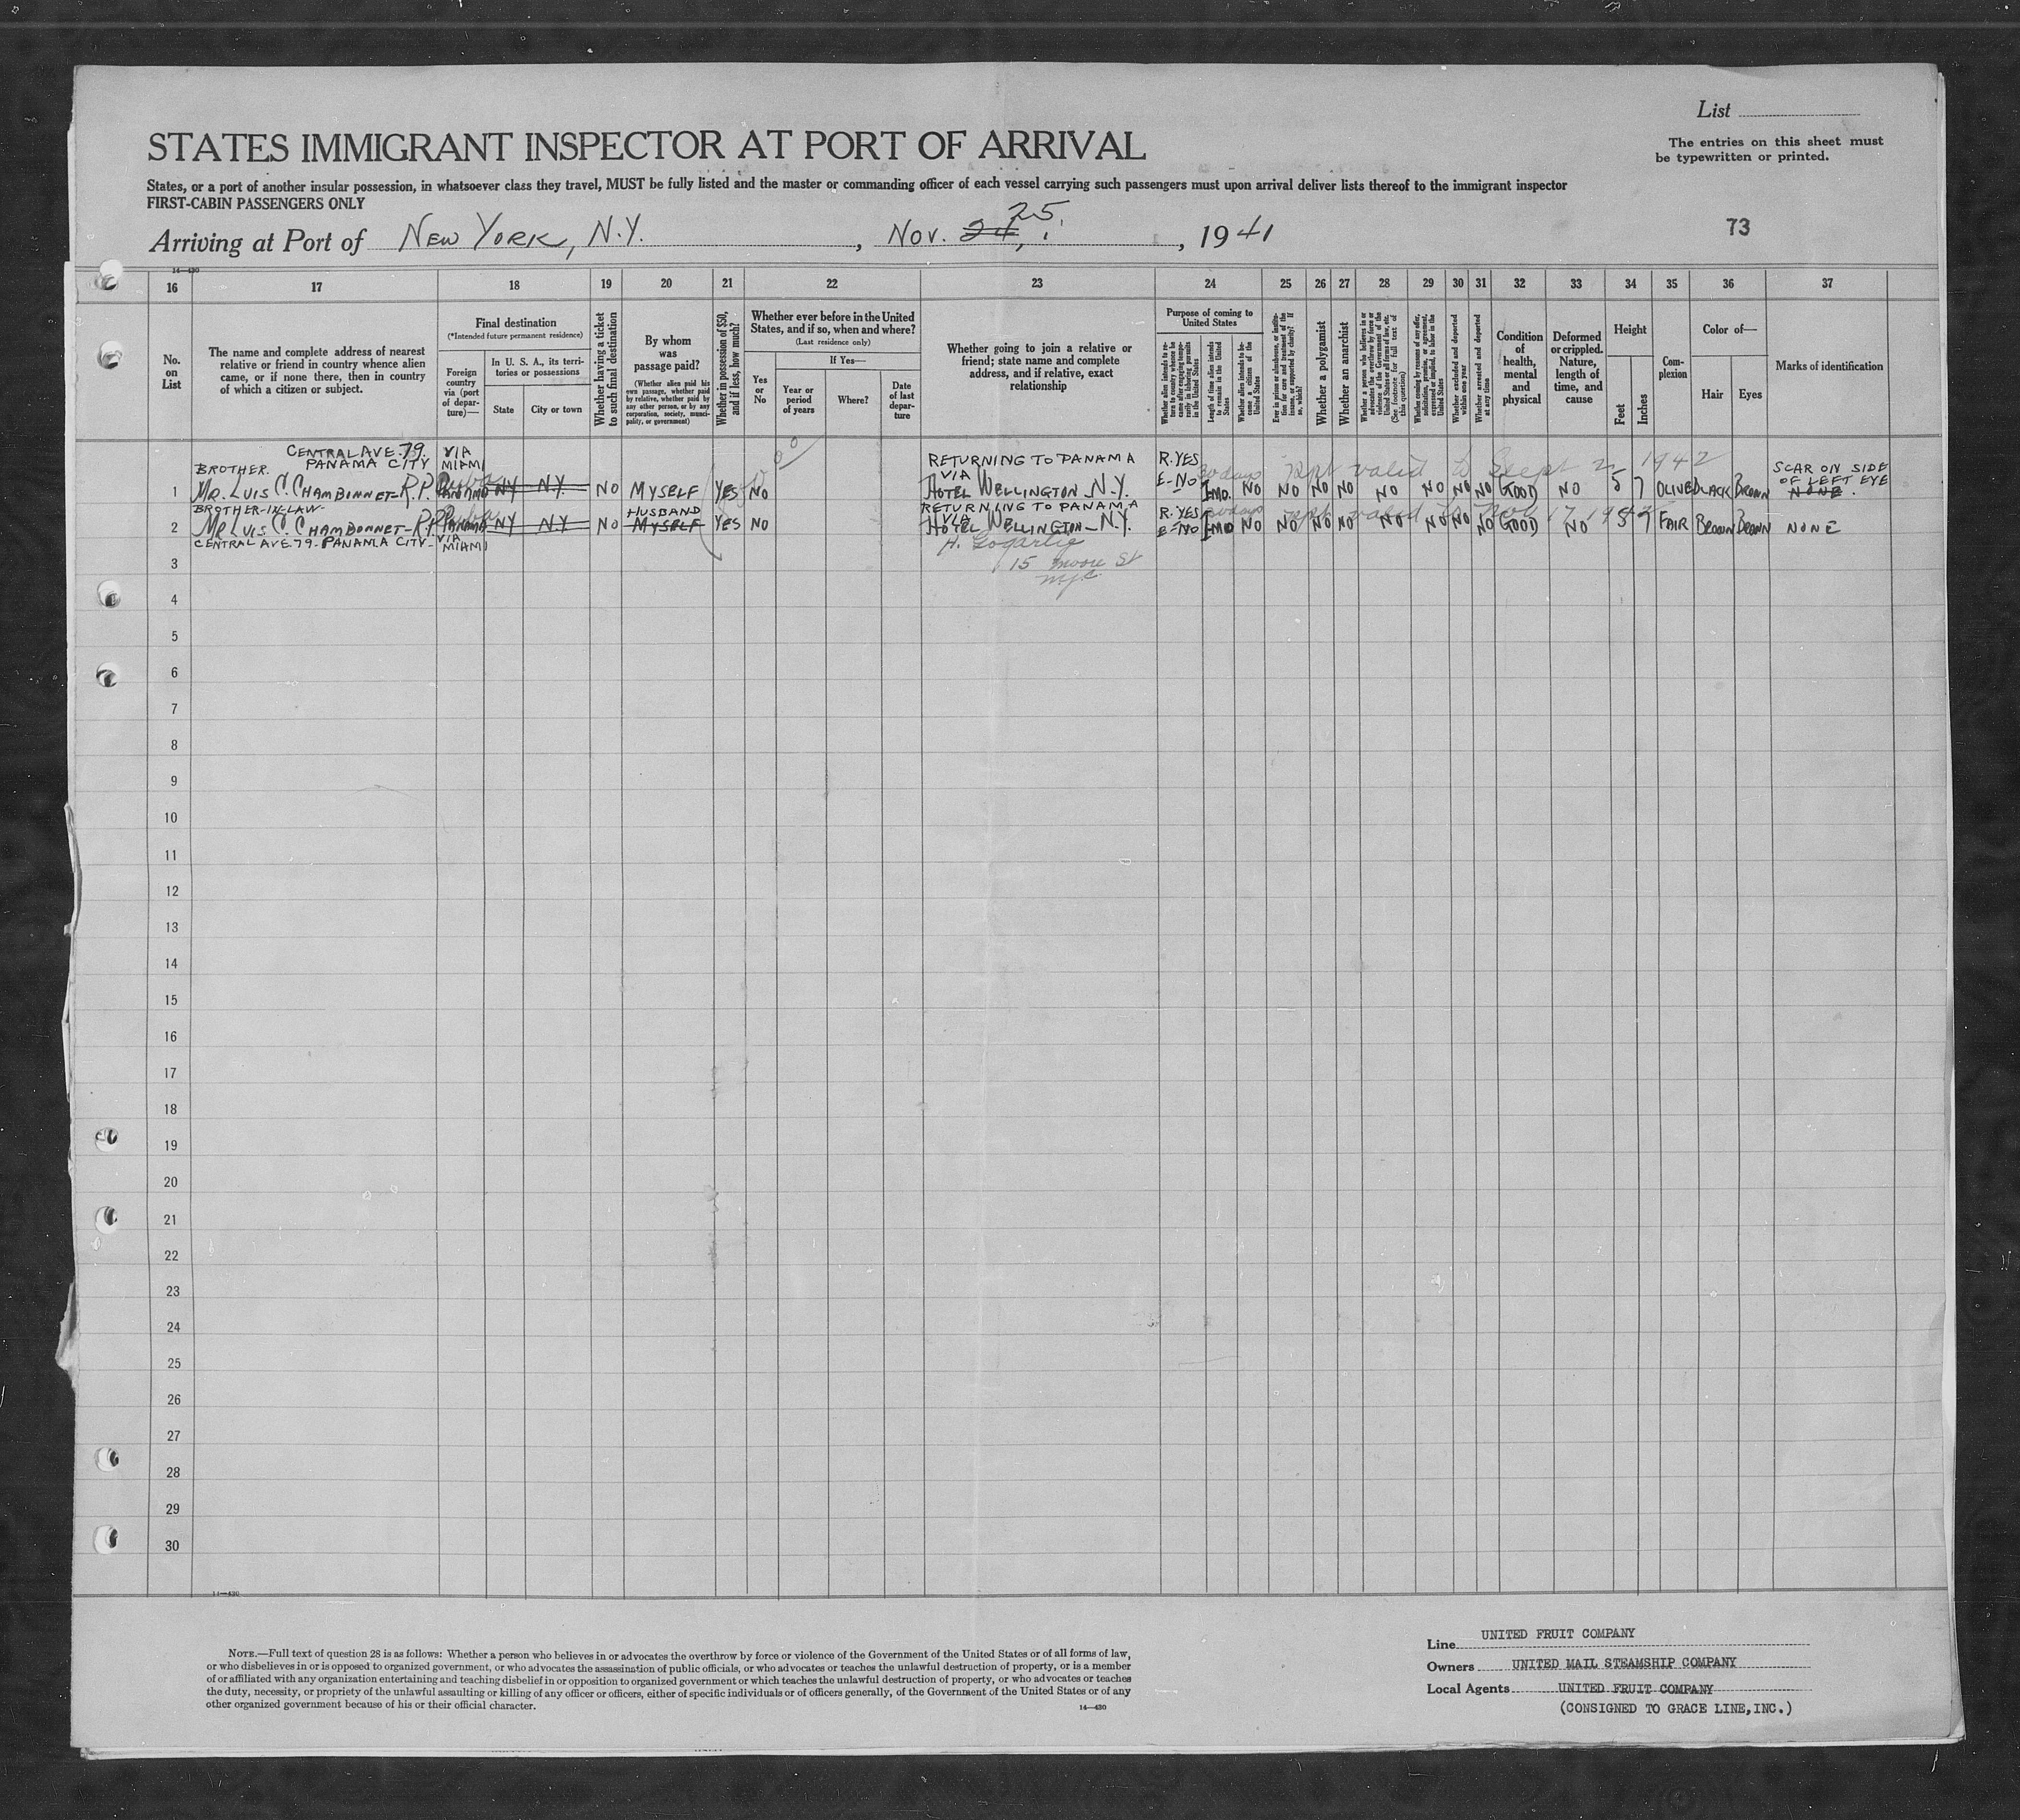 List
The entries on this sheet must
be typewritten or printed.
STATES IMMIGRANT INSPECTOR AT PORT OF ARRIVAL
States, or a port of another insular possession, in whatsoever class they travel, MUST be fully listed and the master or commanding officer of each vessel carrying such passengers must upon arrival deliver lists thereof to the immigrant inspector
FIRST-CABIN PASSENGERS ONLY
25
Arriving at Port of NEW YORK, N.Y., NOV. 24, 1941
73
14—430
16 17 18 19 20 21 22 23 24 25 26 27 28 29 30 31 32 33 34 35 36 37
No. on List
The name and complete address of nearest relative or friend in country whence alien came, or if none there, then in country of which a citizen or subject.
Final destination
(*Intended future permanent residence)
Foreign country via (port of departure)—
In U. S. A., its territories or possessions
State
City or town
Whether having a ticket to such final destination
By whom was passage paid?
(Whether alien paid his own passage, whether paid by relative, whether paid by any other person, or by any corporation, society, municipality, or government)
Whether in possession of $50, and if less, how much?
Whether ever before in the United States, and if so, when and where?
(Last residence only)
Yes or No
If Yes—
Year or period of years
Where?
Date of last departure
Whether going to join a relative or friend; state name and complete address, and if relative, exact relationship
Purpose of coming to United States
Whether alien intends to return to country whence he came after engaging temporarily in laboring pursuits in the United States
Length of time alien intends to remain in the United States
Whether alien intends to become a citizen of the United States
Ever in prison or almshouse, or institution for care and treatment of the insane, or supported by charity? If so, which?
Whether a polygamist
Whether an anarchist
Whether a person who believes in or advocates the overthrow by force or violence of the Government of the United States or all forms of law, etc. (See footnote for full text of this question)
Whether coming by reason of any offer, solicitation, promise, or agreement, expressed or implied, to labor in the United States
Whether excluded and deported within one year
Whether arrested and deported at any time
Condition of health, mental and physical
Deformed or crippled. Nature, length of time, and cause
Height
Feet
Inches
Complexion
Color of—
Hair
Eyes
Marks of identification
CENTRAL AVE. 79.
BROTHER. PANAMA CITY VIA MIAMI
1 MR. LUIS C. CHAMBONNET-R.P. PANAMA NY N.Y. NO MYSELF YES NO
RETURNING TO PANAMA
VIA
HOTEL WELLINGTON N.Y.
R. YES
E-NO 1 MO. NO NO NO NO NO NO NO NO GOOD NO 5 7 OLIVE BLACK BROWN
30 days ppt valid to Sept 2, 1942
SCAR ON SIDE
OF LEFT EYE
NONE.
BROTHER-IN-LAW-
2 MR LUIS C. CHAMBONNET-R.P. PANAMA NY N.Y NO HUSBAND MYSELF YES NO
CENTRAL AVE. 79- PANAMA CITY- VIA MIAMI
RETURNING TO PANAMA
VIA
HOTEL WELLINGTON-N.Y.
R. YES
E-NO 1 MO NO NO NO NO NO NO NO NO GOOD NO 5 7 FAIR BROWN BROWN NONE
15 Moore St
N.Y.C.
3
4
5
6
7
8
9
10
11
12
13
14
15
16
17
18
19
20
21
22
23
24
25
26
27
28
29
30
14—430
NOTE.—Full text of question 28 is as follows: Whether a person who believes in or advocates the overthrow by force or violence of the Government of the United States or of all forms of law,
or who disbelieves in or is opposed to organized government, or who advocates the assassination of public officials, or who advocates or teaches the unlawful destruction of property, or is a member
of or affiliated with any organization entertaining and teaching disbelief in or opposition to organized government or which teaches the unlawful destruction of property, or who advocates or teaches
the duty, necessity, or propriety of the unlawful assaulting or killing of any officer or officers, either of specific individuals or of officers generally, of the Government of the United States or of any
other organized government because of his or their official character.
14—430
Line UNITED FRUIT COMPANY
Owners UNITED MAIL STEAMSHIP COMPANY
Local Agents UNITED FRUIT COMPANY
(CONSIGNED TO GRACE LINE, INC.)